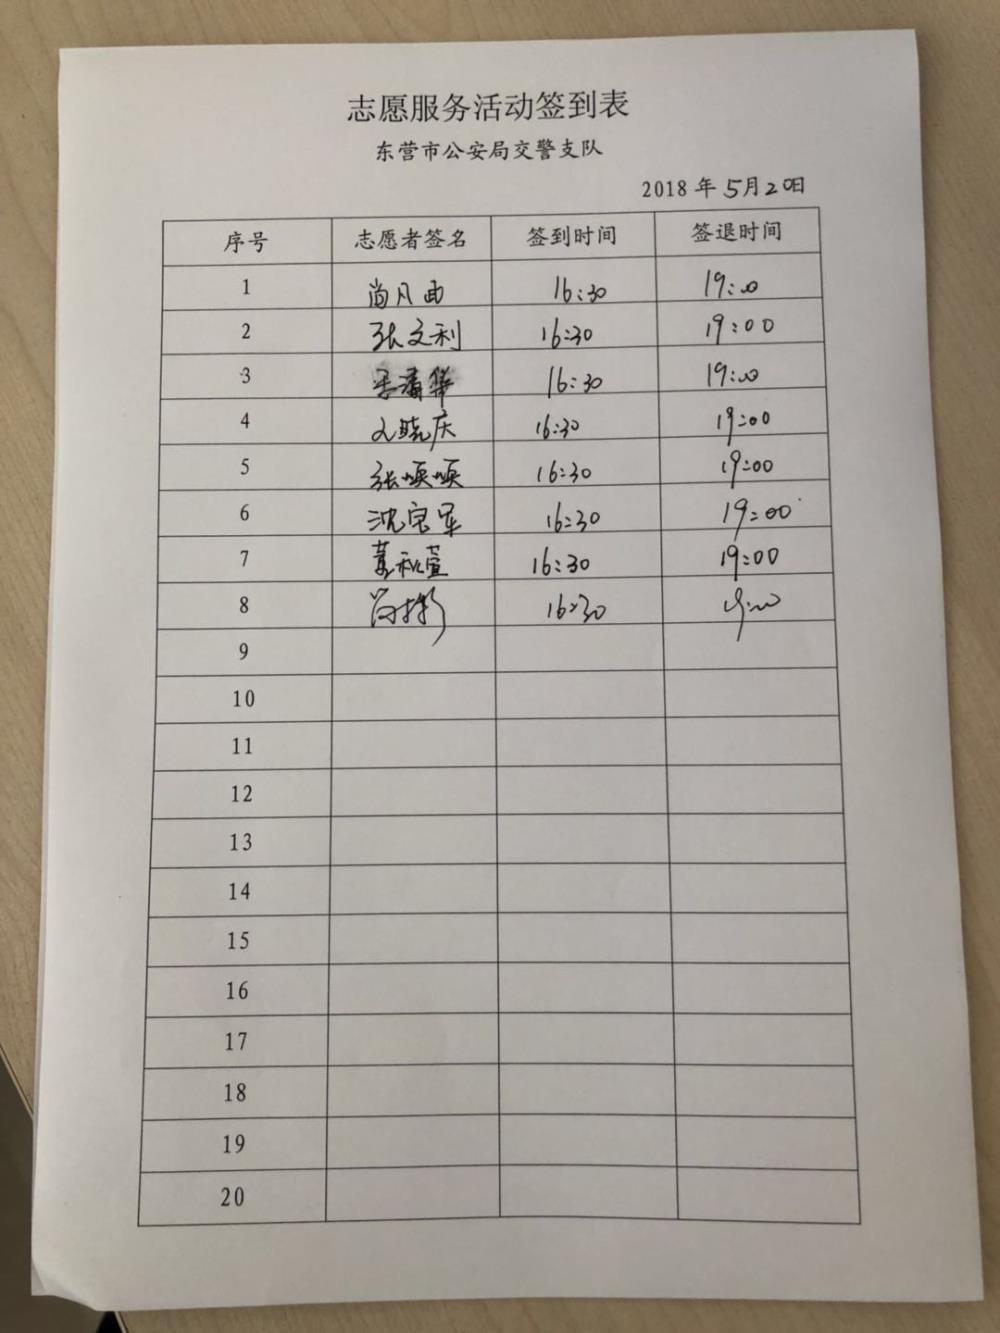 志愿服务活动签到表
东营市公安局交警支队
2018年5月20日
序号 志愿者签名 签到时间 签退时间
1 尚凡曲 16:30 19:00
2 张文利 16:30 19:00
3 16:30 19:00
4 刘晓庆 16:30 19:00
5 张顺顺 16:30 19:00
6 沈宝军 16:30 19:00
7 16:30 19:00
8 16:30 19:00
9
10
11
12
13
14
15
16
17
18
19
20